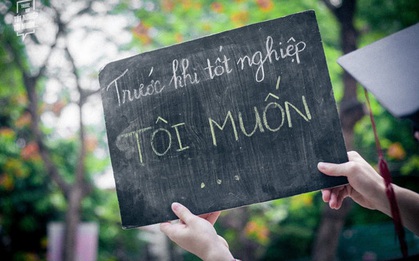 Trước khi tốt nghiệp
TÔI MUỐN
...